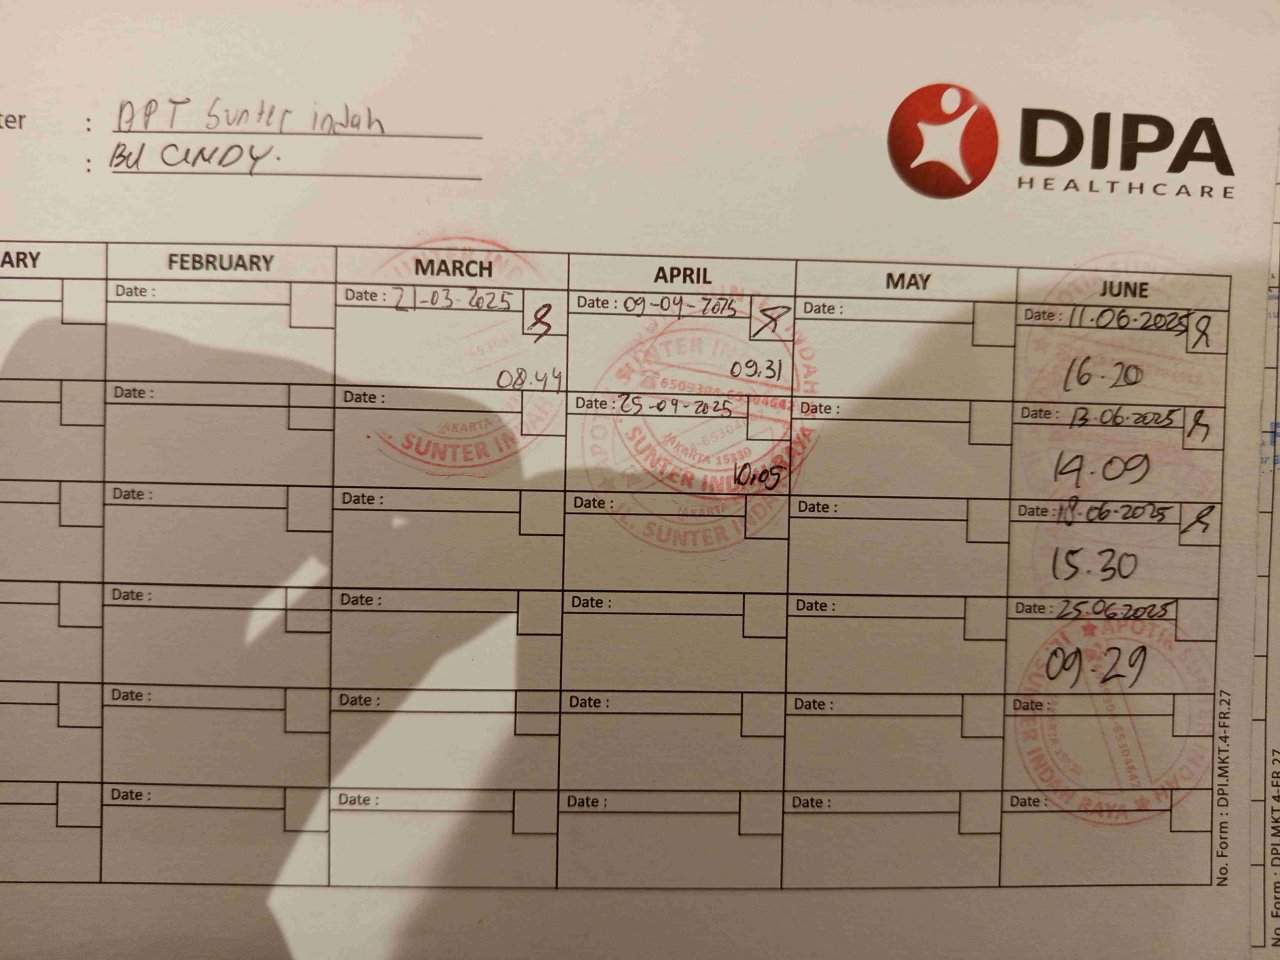 ter : APT Sunter indah
: BU CINDY.
DIPA
HEALTHCARE
ARY FEBRUARY MARCH APRIL MAY JUNE
Date : Date : 21-03-2025 Date : 09-04-2025 Date : Date : 11.06.2025
08.44 09.31 16.20
Date : Date : Date : 25-04-2025 Date : Date : 13-06-2025
10.05 14.09
Date : Date : Date : Date : Date : 18-06-2025
15.30
Date : Date : Date : Date : Date : 25.06.2025
09.29
Date : Date : Date : Date : Date :
Date : Date : Date : Date : Date :
No. Form : DPI.MKT.4-FR.27
No. Form : DPI.MKT.4-FR.27
SUNTER INDAH
JAKARTA
SUNTER INDAH RAYA
JAKARTA
JL. SUNTER INDAH RAYA
APOTIK SUNTER INDAH